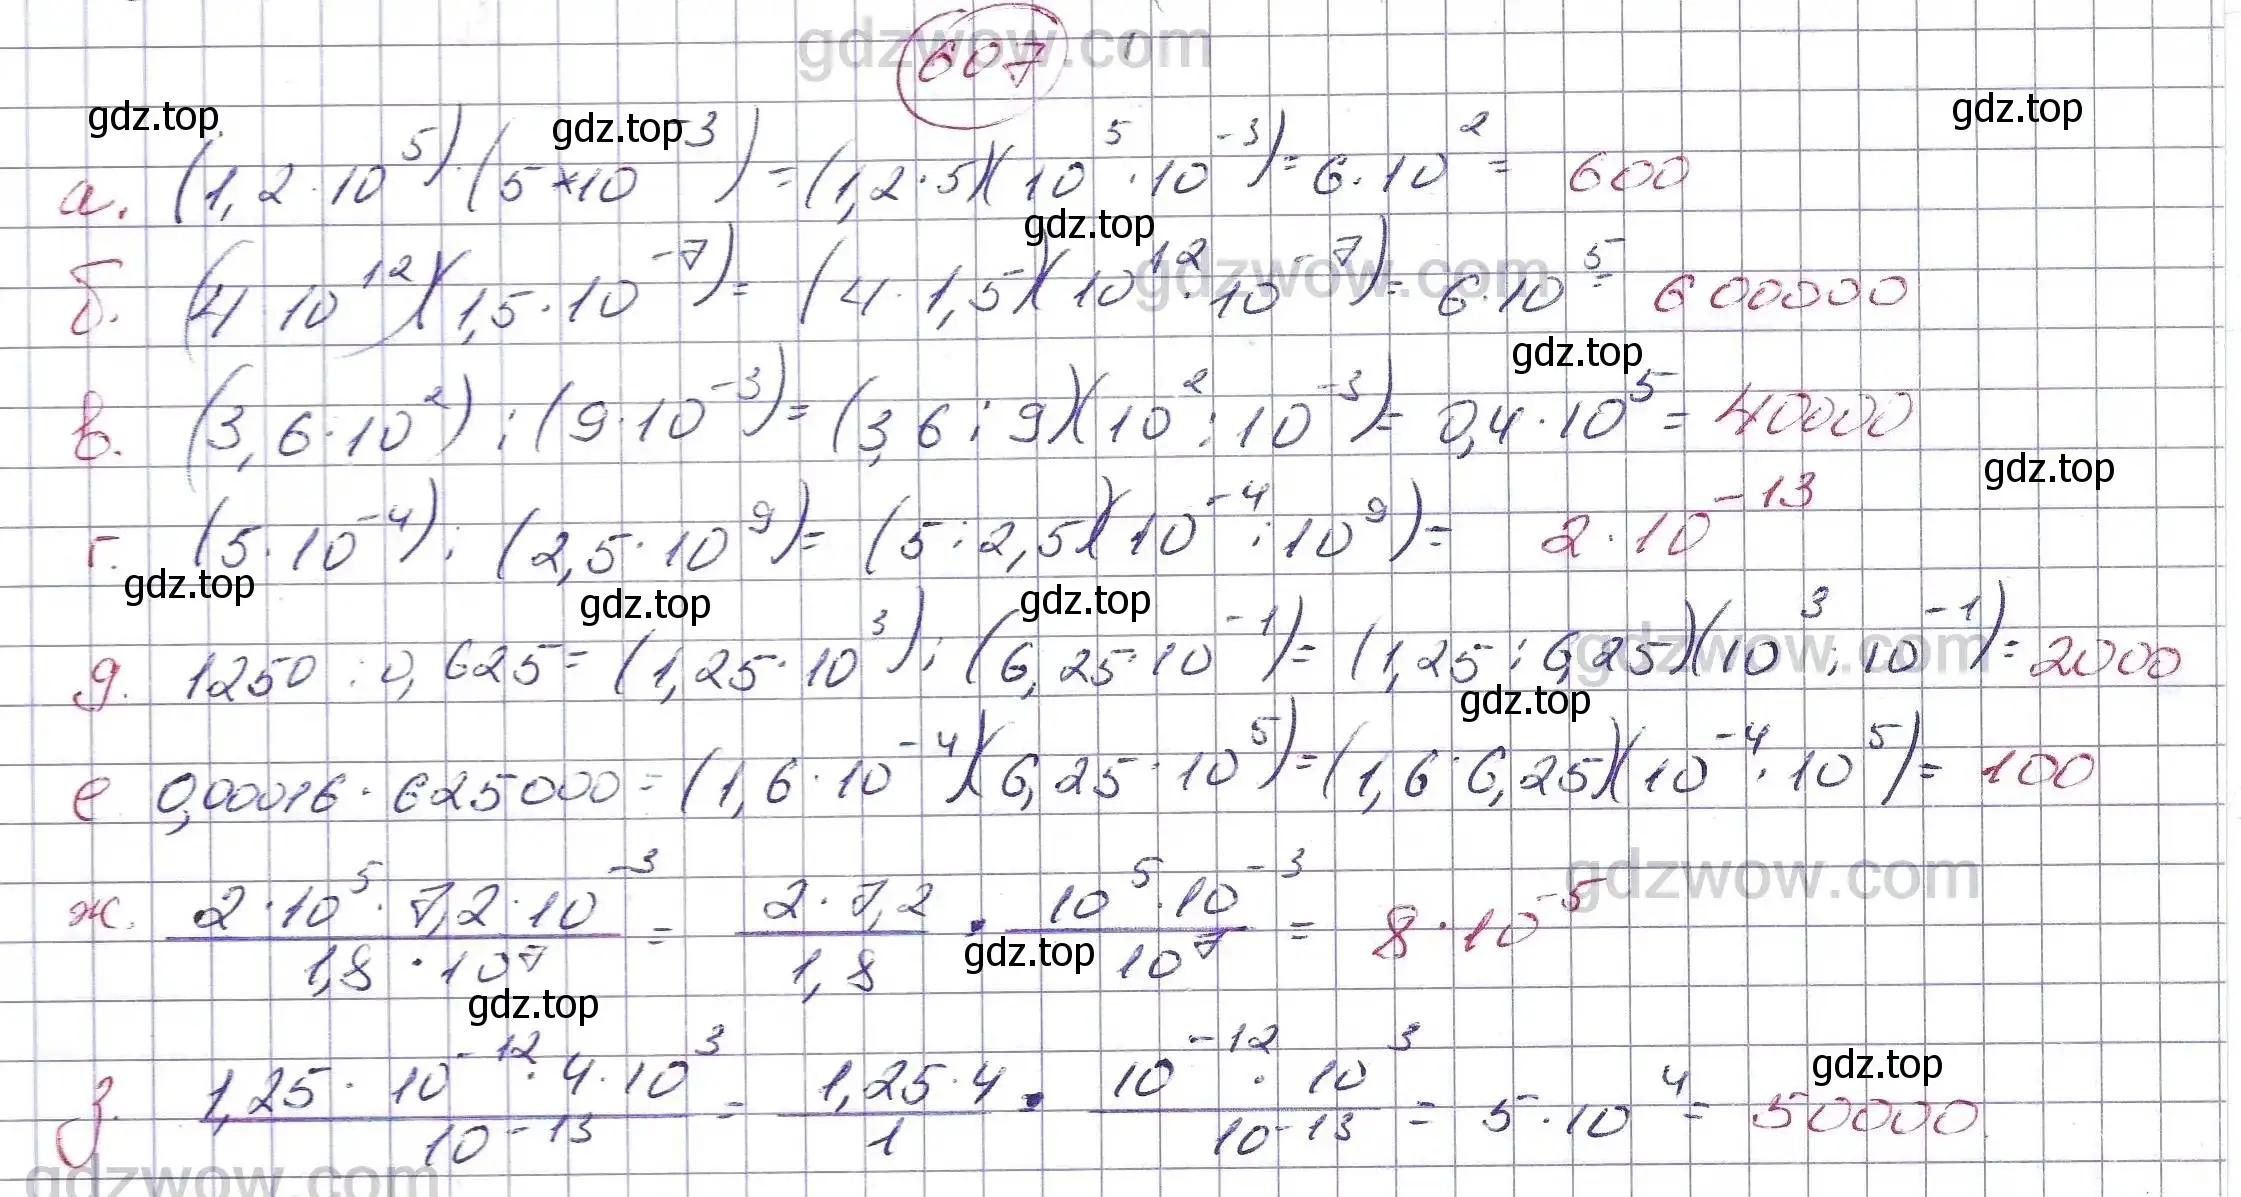 607
gdzwow.com
gdz.top gdz.top gdz.top
а. (1,2·10⁵)·(5*10⁻³)=(1,2·5)(10⁵·10⁻³)=6·10²=600
gdz.top
gdzwow.com
б. (4 10¹²)(1,5·10⁻⁷)=(4·1,5)(10¹²·10⁻⁷)=6·10⁵=600000
gdz.top
в. (3,6·10²):(9·10⁻³)=(3,6:9)(10²:10⁻³)=0,4·10⁵=40000
gdz.top
г. (5·10⁻⁴):(2,5·10⁹)=(5:2,5)(10⁻⁴:10⁹)=2·10⁻¹³
gdz.top gdz.top gdz.top
д. 1250:0,625=(1,25·10³):(6,25·10⁻¹)=(1,25:6,25)(10³:10⁻¹)=2000
gdzwow.com
gdz.top
е 0,00016·625000=(1,6·10⁻⁴)(6,25·10⁵)=(1,6·6,25)(10⁻⁴·10⁵)=100
gdzwow.com
ж. 2·10⁵·7,2·10⁻³/1,8·10⁷ = 2·7,2/1,8 · 10⁵·10⁻³/10⁷ = 8·10⁻⁵
gdz.top
gdz.top
gdz.top
з. 1,25·10⁻¹²·4·10³/10⁻¹³ = 1,25·4/1 · 10⁻¹²·10³/10⁻¹³ = 5·10⁴=50000
gdzwow.com